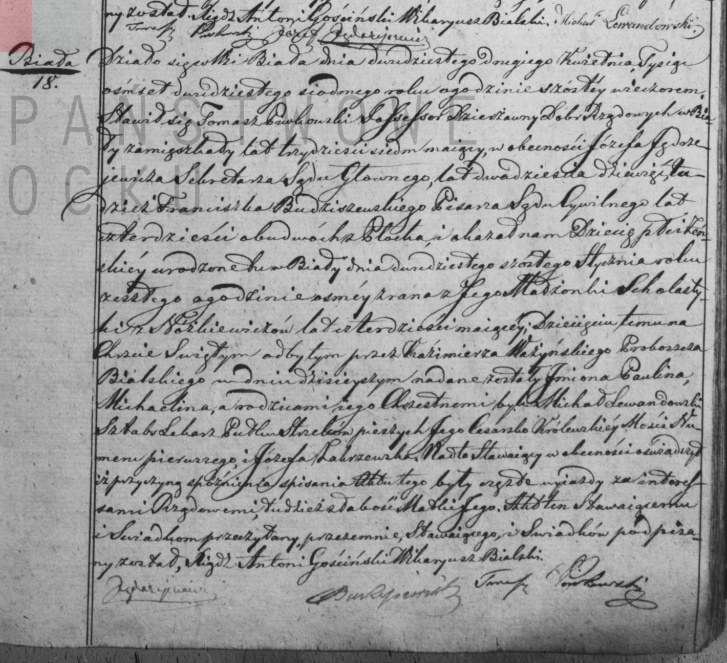 ny został Xiądz Antoni Gościński Wikaryusz Bialski. Michał Lewandowski
Tomasz Pawłowski Józef Jędrzejewicz
Biała
18.
Działo się w Wsi Biała dnia dwudziestego drugiego Kwietnia, Tysiąc
ośmset dwudziestego siódmego roku o godzinie szóstey wieczorem.
Stawił się Tomasz Pawłowski Assessor Dzierżawny Dobr Rządowych w Bia-
ły zamięszkały lat trzydzieści siedm maiący, w obecności Józefa Jędrze-
jewicza Sekretarza Sądu Głownego, lat dwadzieścia dziewięć, tu-
dzież Franciszka Budziszewskiego Pisarza Sądu Cywilnego lat
czterdzieści obudwóch z Płocka, i okazał nam Dziecię płci Żeń-
skiéy urodzone tu w Biały dnia dwudziestego szóstego Stycznia roku
zeszłego o godzinie osméy zrana z Jego Małżonki Scholasty-
ki z lat czterdzieści maiącéy; Dziecięciu temu na
Chrzcie Świętym odbytym przez Kazimierza Proboszcza
Bialskiego w dniu dzisieyszym nadane zostały Imiona Paulina,
Michalina, a rodzicami jego Chrzestnemi byli Michał Lewandowski
Sztabs Lekarz Pułku Strzelców pieszych Jego Cesarsko Królewskiéy Mości Nu-
meru pierwszego, i Józefa Stawaiący w obecności oświadczył
iż przyczyną spóźnienia spisania Aktu tego były częste wyjazdy za interes-
sami Rządowemi tudzież słabość Matki Jego. Akt ten Stawaiącemu
i Świadkom przeczytany, przezemnie, Stawaiącego, i Świadków podpisa-
ny został, Xiądz Antoni Gościński Wikaryusz Bialski.
Jędrzejewicz Budziszewski Tomasz Pawłowski
PAŃSTWOWE
OCKU